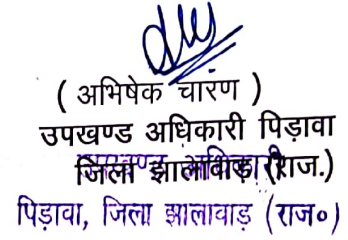 ( अभिषेक चारण )
उपखण्ड अधिकारी पिड़ावा
जिला झालावाड़ (राज.)
उपखण्ड अधिकारी
पिड़ावा, जिला झालावाड़ (राज०)